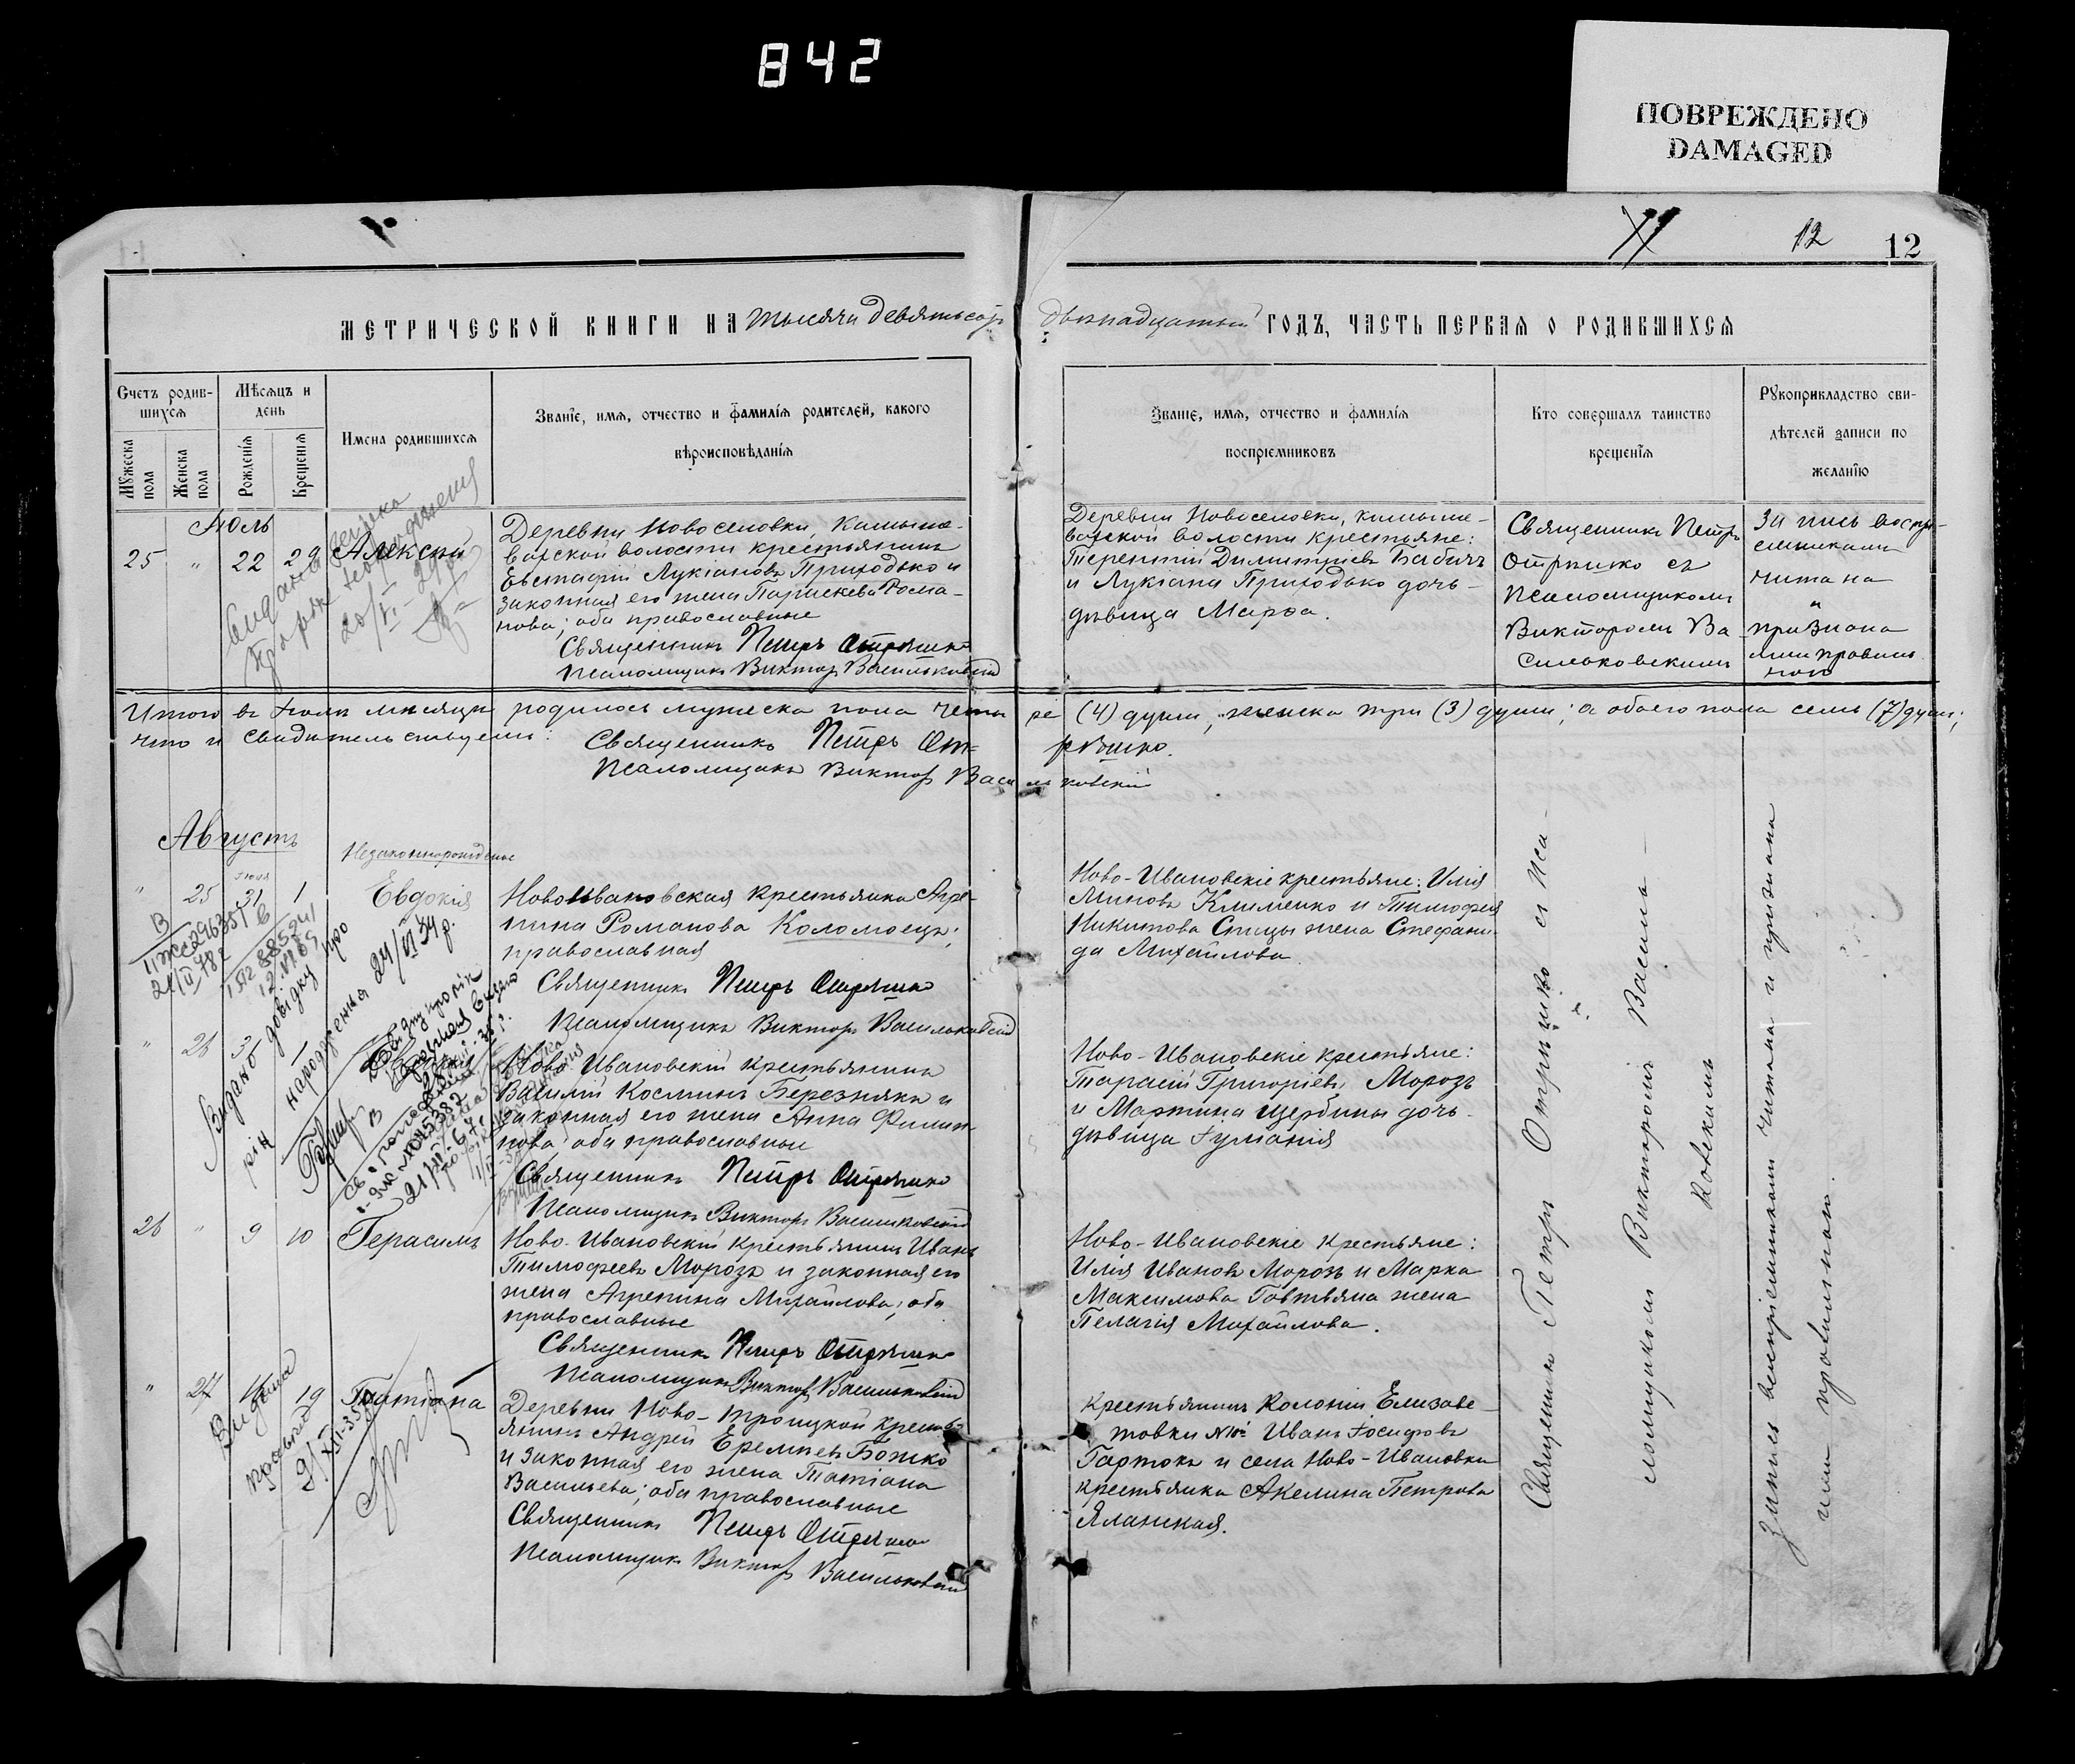 842
ПОВРЕЖДЕНО
DAMAGED
12
12
МЕТРИЧЕСКОЙ КНИГИ НА тысяча девятьсот двѣнадцатый ГОДЪ, ЧАСТЬ ПЕРВАЯ О РОДИВШИХСЯ
Счетъ родив-
шихся
Мѣсяцъ и
день
Имена родившихся
Званіе, имя, отчество и фамилія родителей, какого
вѣроисповѣданія
Мужеска пола
Женска пола
Рожденія
Крещенія
Званіе, имя, отчество и фамилія
воспріемниковъ
Кто совершалъ таинство
крещенія
Рукоприкладство сви-
дѣтелей записи по
желанію
Іюль
25 " 22 29 Алексій
Деревни Новоселовки, Камыше-
ватской волости крестьянинъ
Евстафій Лукіановъ Приходько и
законная его жена Параскева Рома-
нова; оба православные
Священникъ Петръ Отрѣшко
Псаломщикъ Викторъ Васильковскій
Деревни Новоселовки, Камыше-
ватской волости крестьяне:
Терентій Димитріевъ Бабичъ
и Лукіана Приходько дочь-
дѣвица Марѳа.
Священникъ Петръ
Отрѣшко съ
псаломщикомъ
Викторомъ Ва-
сильковскимъ
Запись воспрі-
емниками
читана
и
признана
ими правиль-
ною
Итого въ Іюлѣ мѣсяцѣ родилось мужеска пола четыре (4) души, женска три (3) души; а обоего пола семь (7) душъ;
что и свидѣтельствуемъ:
Священникъ Петръ Отрѣшко.
Псаломщикъ Викторъ Васильковскій
Августъ
Незаконнорожденные
Іюля
" 25 31 1 Евдокія
Новоивановская крестьянка Агре-
пина Романова Коломоецъ;
православная
Священникъ Петръ Отрѣшко
Псаломщикъ Викторъ Васильковскій
Ново-Ивановскіе крестьяне: Илія
Миновъ Клименко и Тимофея
Никитова Спицы жена Стефани-
да Михайлова.
Видано довідку про
народження 24/VI 34 р.
" 26 3
Ново-Ивановскій крестьянинъ
Василій Косминъ Березнякъ и
законная его жена Анна Филип-
пова; оба православные
Священникъ Петръ Отрѣшко
Псаломщикъ Викторъ Васильковскій
Ново-Ивановскіе крестьяне:
Тарасій Григоріевъ Морозъ
и Мартина Щербины дочь-
дѣвица Іуліанія
26 " 9 10 Герасимъ
Ново-Ивановскій крестьянинъ Иванъ
Тимофеевъ Морозъ и законная его
жена Агрепина Михайлова; оба
православные
Священникъ Петръ Отрѣшко
Псаломщикъ Викторъ Васильковскій
Ново-Ивановскіе крестьяне:
Илія Ивановъ Морозъ и Марка
Максимова Говтвяна жена
Пелагія Михайлова.
" 27 19 Татіана
Деревни Ново-Троицкой кресть-
янинъ Андрей Еремѣевъ Божко
и законная его жена Татіана
Васильева; оба православные
Священникъ Петръ Отрѣшко
Псаломщикъ Викторъ Васильковскій
Крестьянинъ колоніи Елизаве-
товки Иванъ Іосифовъ
Гартокъ и села Ново-Ивановки
крестьянка Акелина Петрова
Яланская.
Священникъ Петръ Отрѣшко съ пса-
ломщикомъ Викторомъ Василь-
ковскимъ
Запись воспріемниками читана и признана
ими правильною.